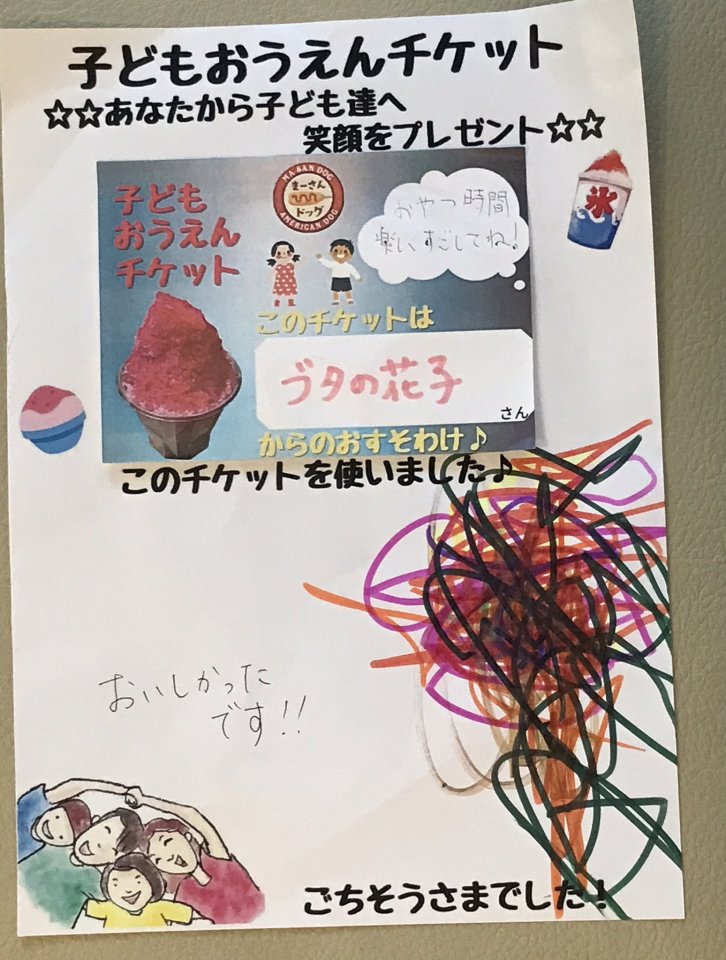 子どもおうえんチケット
☆☆あなたから子ども達へ
笑顔をプレゼント☆☆
氷
子ども
おうえん
チケット
MA SAN DOG
まーさん
ドッグ
AMERICAN DOG
おやつ時間
楽しくすごしてね!
このチケットは
ブタの花子
さん
からのおすそわけ♪
このチケットを使いました♪
おいしかった
です!!
ごちそうさまでした!